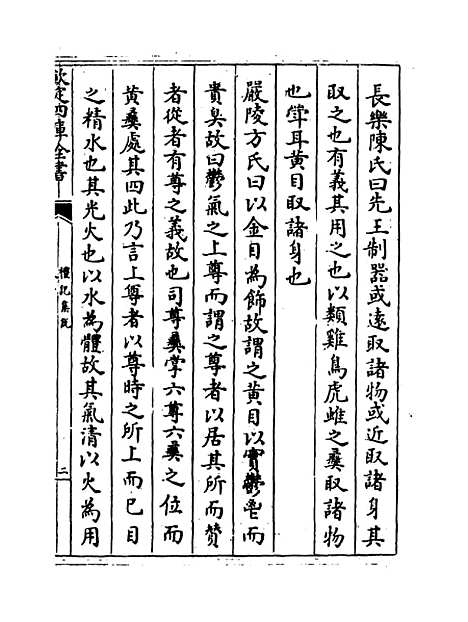 長樂陳氏曰先王制器或逺取諸物或近取諸身其
取之也有義其用之也以類雞鳥虎蜼之彞取諸物
也斚耳黄目取諸身也
嚴陵方氏曰以金目為飾故謂之黄目以實鬱鬯而
貴臭故曰鬱氣之上尊而謂之尊者以居其所而贊
者從者有尊之義故也司尊彞掌六尊六彞之位而
黄彞處其四此乃言上尊者以尊時之所上而已目
之精水也其光火也以水為體故其氣清以火為用
欽定四庫全書
禮記集說
二